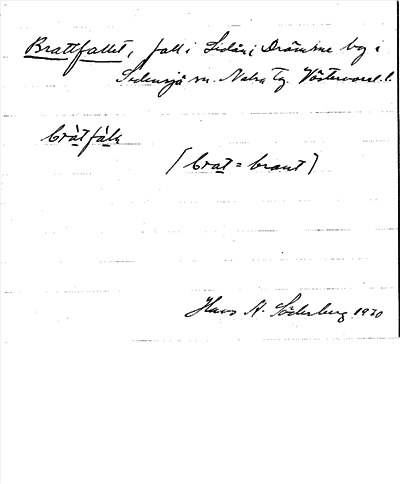 Brattfallet, fall i Sidån i Drömme by i
Sidensjö sn. Nätra tg. Västernorrl. l.
bràtfàlɩ
[brat = brant]
Hans A. Söderberg 1930